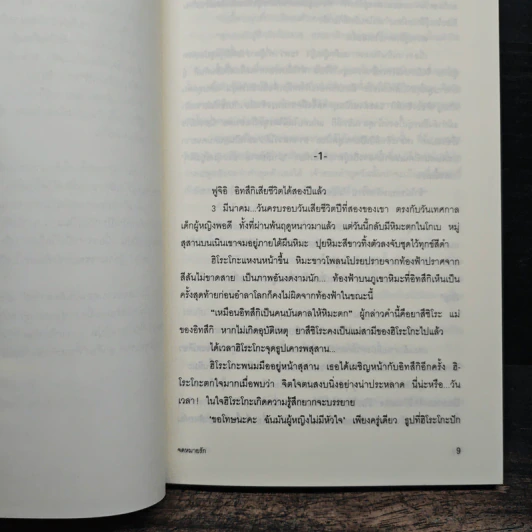 -1-
ฟูจิอิ อิทสึกิเสียชีวิตได้สองปีแล้ว
3 มีนาคม...วันครบรอบวันเสียชีวิตปีที่สองของเขา ตรงกับวันเทศกาล
เด็กผู้หญิงพอดี ทั้งที่ผ่านพ้นฤดูหนาวมาแล้ว แต่วันนี้กลับมีหิมะตกในโกเบ หมู่
สุสานบนเนินเขาจมอยู่ภายใต้ผืนหิมะ ปุยหิมะสีขาวทิ้งตัวลงจับชุดไว้ทุกข์สีดำ
ฮิโระโกะแหงนหน้าขึ้น หิมะขาวโพลนโปรยปรายจากท้องฟ้าปราศจาก
สีสันไม่ขาดสาย เป็นภาพอันงดงามนัก... ท้องฟ้าบนภูเขาหิมะที่อิทสึกิเห็นเป็น
ครั้งสุดท้ายก่อนอำลาโลกก็คงไม่ผิดจากท้องฟ้าในขณะนี้
"เหมือนอิทสึกิเป็นคนบันดาลให้หิมะตก" ผู้กล่าวคำนี้คือยาสึชิโระ แม่
ของอิทสึกิ หากไม่เกิดอุบัติเหตุ ยาสึชิโระคงเป็นแม่สามีของฮิโระโกะไปแล้ว
ได้เวลาฮิโระโกะจุดธูปเคารพสุสาน...
ฮิโระโกะพนมมืออยู่หน้าสุสาน เธอได้เผชิญหน้ากับอิทสึกิอีกครั้ง ฮิ-
โระโกะตกใจมากเมื่อพบว่า จิตใจตนสงบนิ่งอย่างน่าประหลาด นี่น่ะหรือ...วัน
เวลา! ในใจฮิโระโกะเกิดความรู้สึกยากจะบรรยาย
'ขอโทษนะคะ ฉันมันผู้หญิงไม่มีหัวใจ' เพียงครู่เดียว ธูปที่ฮิโระโกะปัก
จดหมายรัก
9